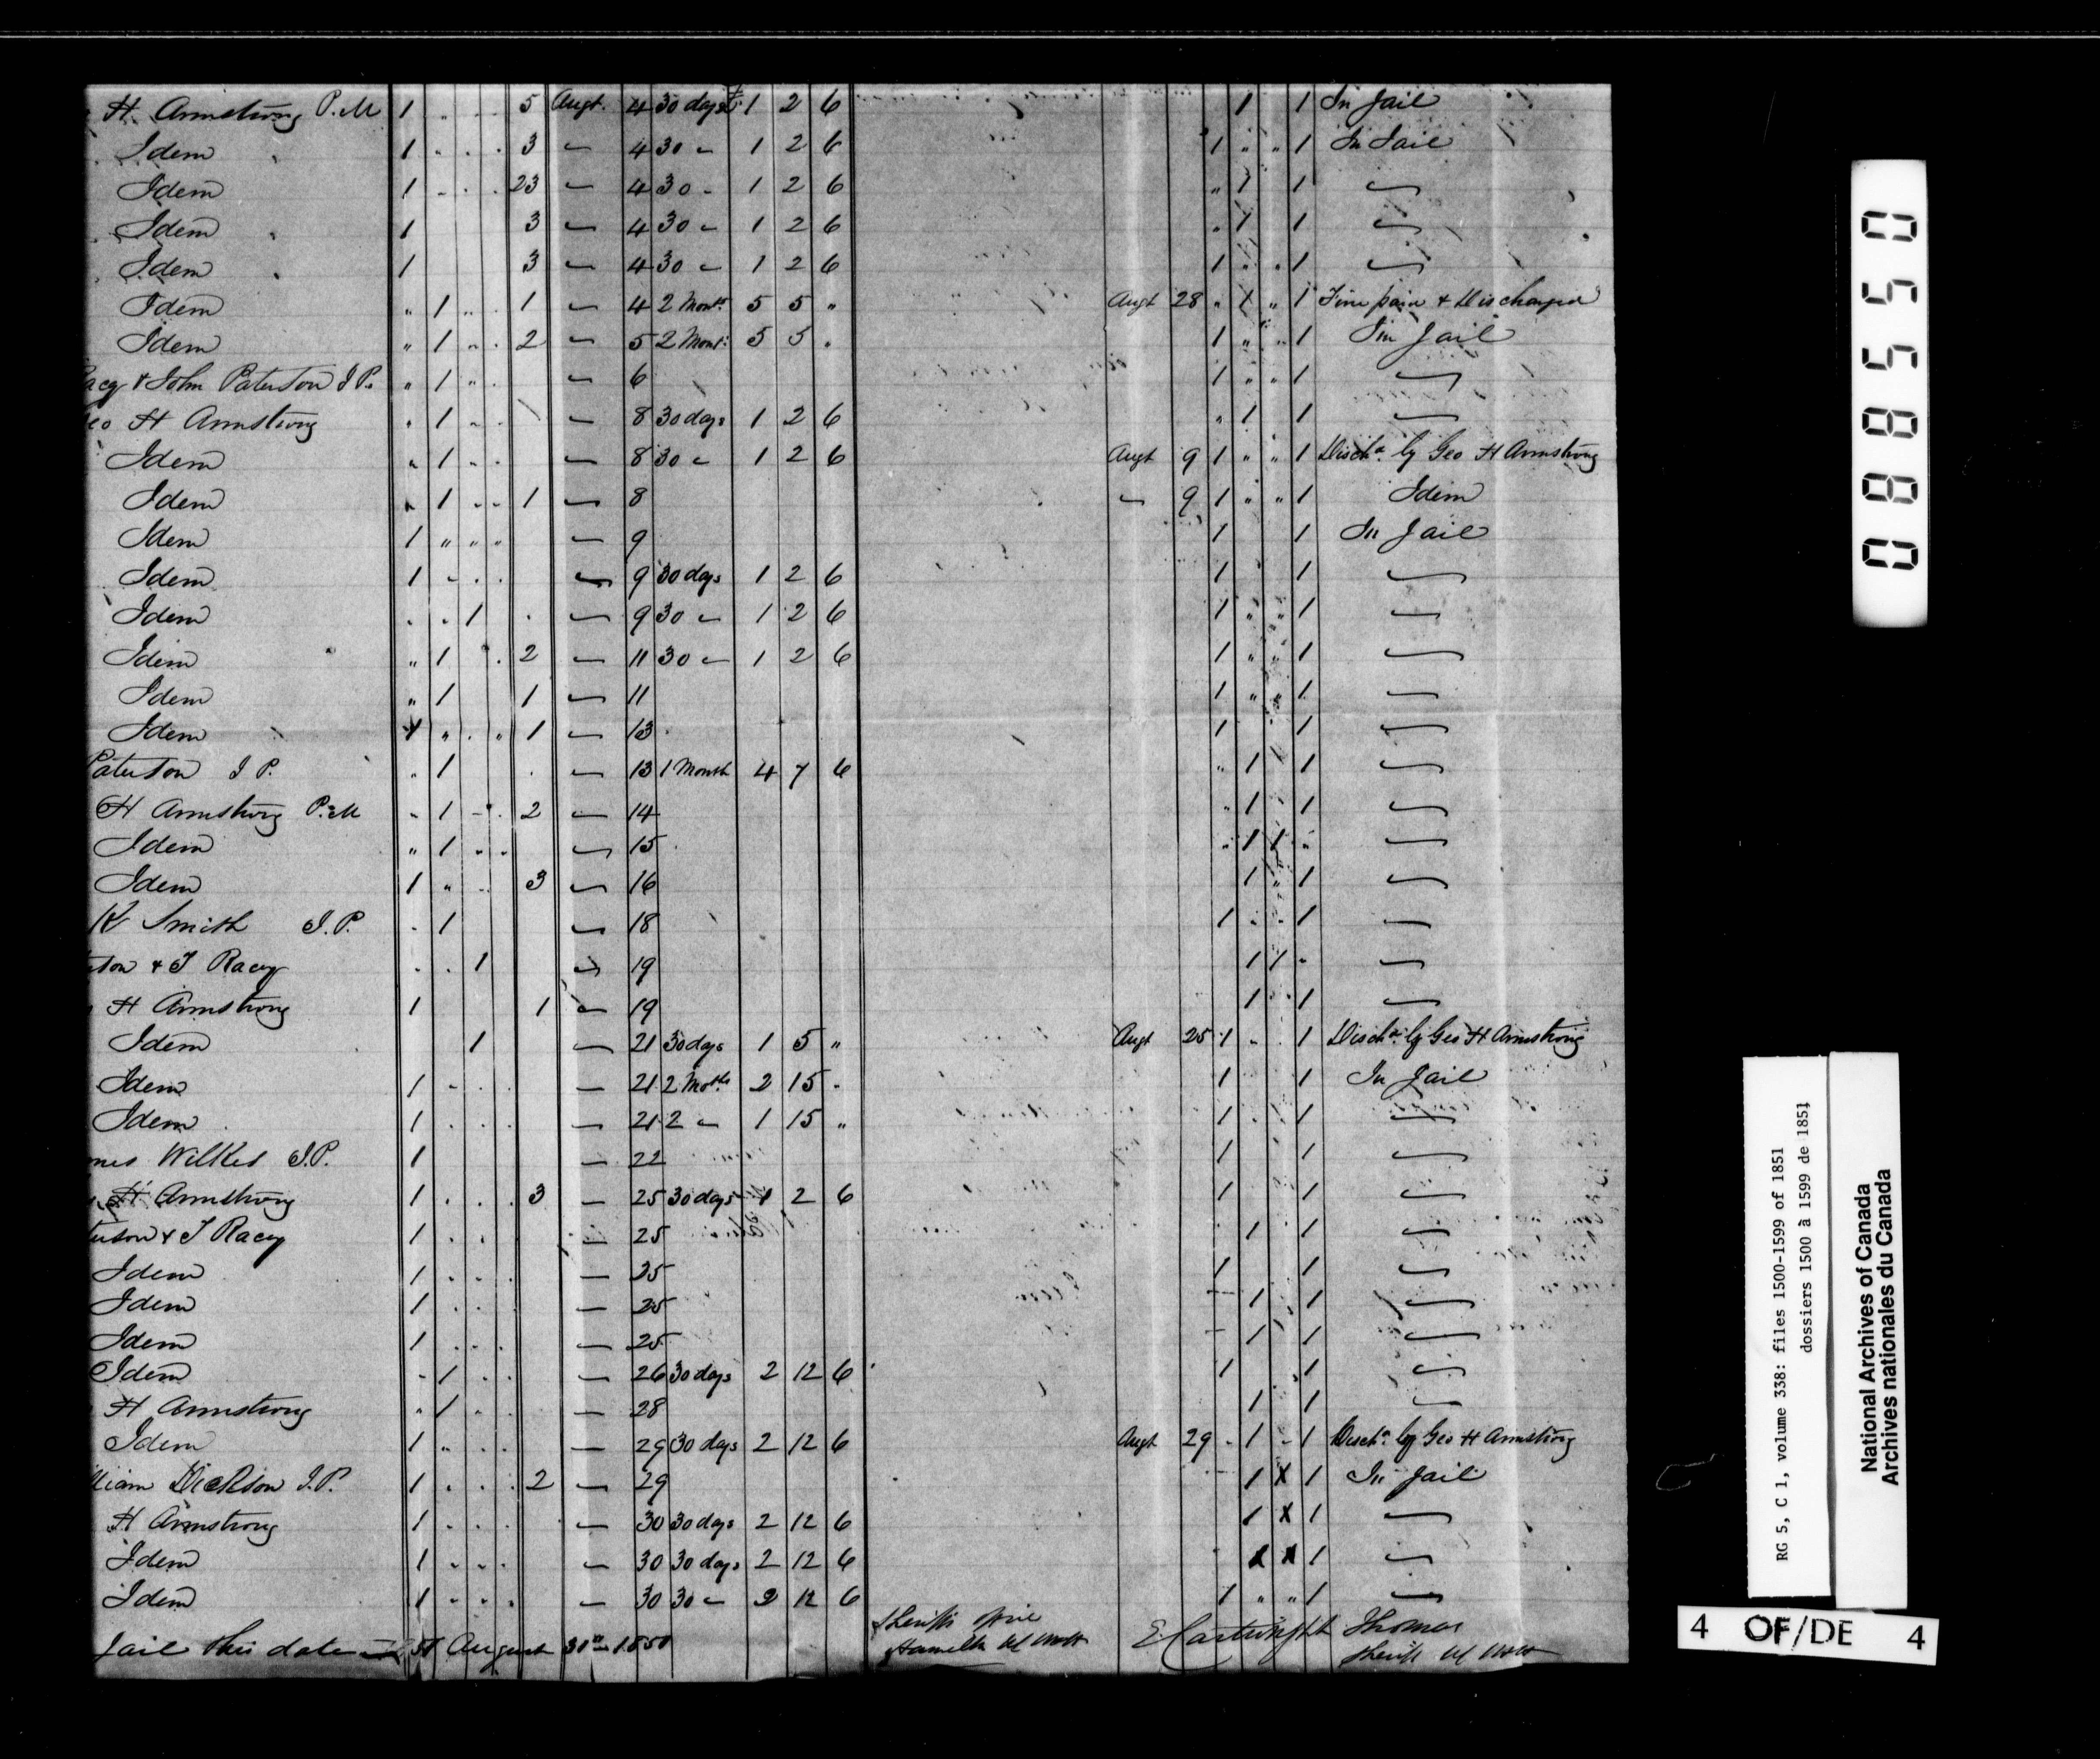 H. Armstrong P.M 1 5 Augt. 4 30 days 1 2 6 1 1 In Jail
Idem 1 3 " 4 30 " 1 2 6 1 " " 1 In Jail
Idem 1 23 " 4 30 " 1 2 6 " 1 1 "
Idem 1 3 " 4 30 " 1 2 6 " 1 1 "
Idem 1 3 " 4 30 " 1 2 6 1 " " 1 "
Idem " 1 " 1 " 4 2 Months 5 5 " Augt 28 " 1 " 1 Fine paid & Discharged
Idem " 1 " 2 " 5 2 Mont: 5 5 " 1 " " 1 In Jail
acey & John Paterson J P. " 1 " " 6 1 " " 1 "
eo H Armstrong " 1 " 8 30 days 1 2 6 " 1 1 "
Idem " 1 " 8 30 " 1 2 6 Augt 9 1 " " 1 Disch. by Geo H Armstrong
Idem " 1 " " 1 " 8 " 9 1 " " 1 Idem
Idem 1 " " " " 9 1 1 In Jail
Idem 1 " " 9 30 days 1 2 6 1 1 "
Idem " " 1 " 9 30 " 1 2 6 1 " " 1 "
Idem " 1 2 " 11 30 " 1 2 6 1 " " 1 "
Idem " 1 1 " 11 1 " " 1 "
Idem 1 " " " 1 " 13 1 1 "
Paterson J P. " 1 " 13 1 Month 4 7 6 " 1 1 "
H Armstrong P.M " 1 " 2 " 14 " 1 1 "
Idem " 1 " " " 15 " 1 1 " "
Idem 1 " " 3 " 16 1 " 1 "
K Smith J.P. " 1 " 18 1 " 1 "
son & J Racey " " 1 " 19 1 1 " "
H Armstrong 1 1 " 19 1 1 "
Idem 1 " 21 30 days 1 5 " Augt 25 1 " 1 Disch. by Geo H Armstrong
Idem 1 " " 21 2 Moths 2 15 " 1 1 In Jail
Idem 1 " 21 2 " 1 15 " 1 1 "
mes Wilkes J.P. 1 " 22 1 1 "
H Armstrong 1 3 " 25 30 days 1 2 6 1 1 "
terson & J Racey 1 " 25 1 1 "
Idem 1 " 25 1 1 "
Idem 1 " 25 1 1 "
Idem 1 " 25 1 1 "
Idem " 1 " 26 30 days 2 12 6 1 1 "
H Armstrong " 1 " 28 1 1 "
Idem 1 " " 29 30 days 2 12 6 Augt 29 " 1 " 1 Disch. by Geo H Armstrong
lliam Dickson J.P. 1 2 " 29 1 X 1 In Jail
H Armstrong 1 " 30 30 days 2 12 6 1 X 1 "
Idem 1 " 30 30 days 2 12 6 X X 1 "
Idem 1 " 30 30 " 2 12 6 1 " " 1 "
Jail this date 31 August 30th 1850
Sheriffs Office
Hamilton
E Cartwright Thomas
Sheriff
088550
RG 5, C 1, volume 338: files 1500-1599 of 1851
dossiers 1500 à 1599 de 1851
National Archives of Canada
Archives nationales du Canada
4 OF/DE 4